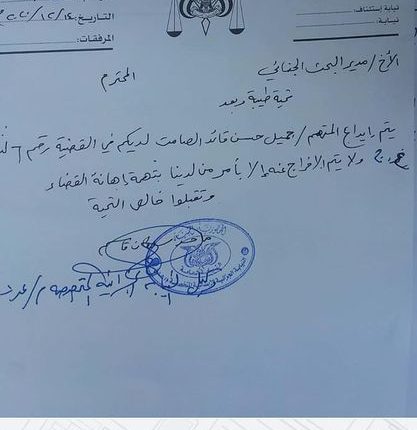 نيابة إستئناف:
نيابة:
التاريخ: ١٤/١٢/٢٠٢
المرفقات:
الأخ/ مدير البحث الجنائي
المحترم
تحية طيبة وبعد
يتم إيداع المتهم/ جميل حسن قائد الصامت لديكم في القضية رقم
ولا يتم الافراج عنه إلا بأمر من لدينا بتهمة إهانة القضاء
وتقبلوا خالص التحية
وكيل النيابة الجزائية المتخصصة م/عدن